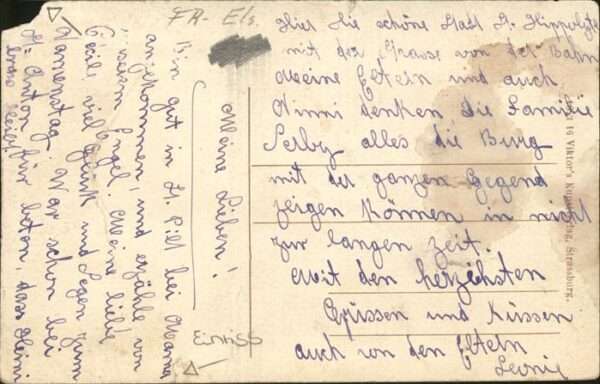 FR-Els.
Meine Lieben!
Bin gut in St. Pilt bei Mama
angekommen, und erzähle von
Engel. Meine liebe
Cécile, viel Glück und Segen zum
Namenstag. War schon bei
St. Anton für beten, dass Heini
Hier die schöne Stadt St. Hippolyte
mit der Strasse von der Bahn
Meine Eltern und auch
Ninni denken die Familie
alles die Burg
mit der ganzen Gegend
zeigen können in nicht
zur langen Zeit.
Mit den herzlichsten
Grüssen und Küssen
auch von den Eltern
Leonie
Einriss
Viktor's Kunstverlag, Strassburg.